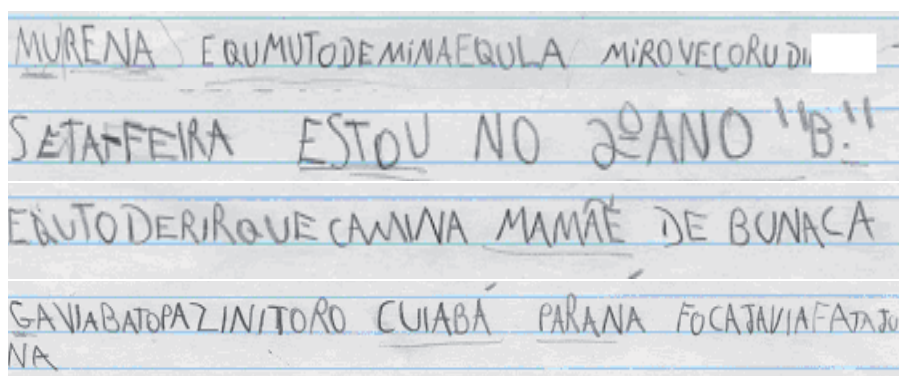 MURENA EQUMUTODEMINAEQULA MIROVECORU
SETA-FEIRA ESTOU NO 2º ANO "B."
EQUTODERIRQUECAMINA MAMÃE DE BUNACA
GAVIABATOPAZINITORO CUIABÁ PARANÁ FOCAJAVIAFATAJU
NA